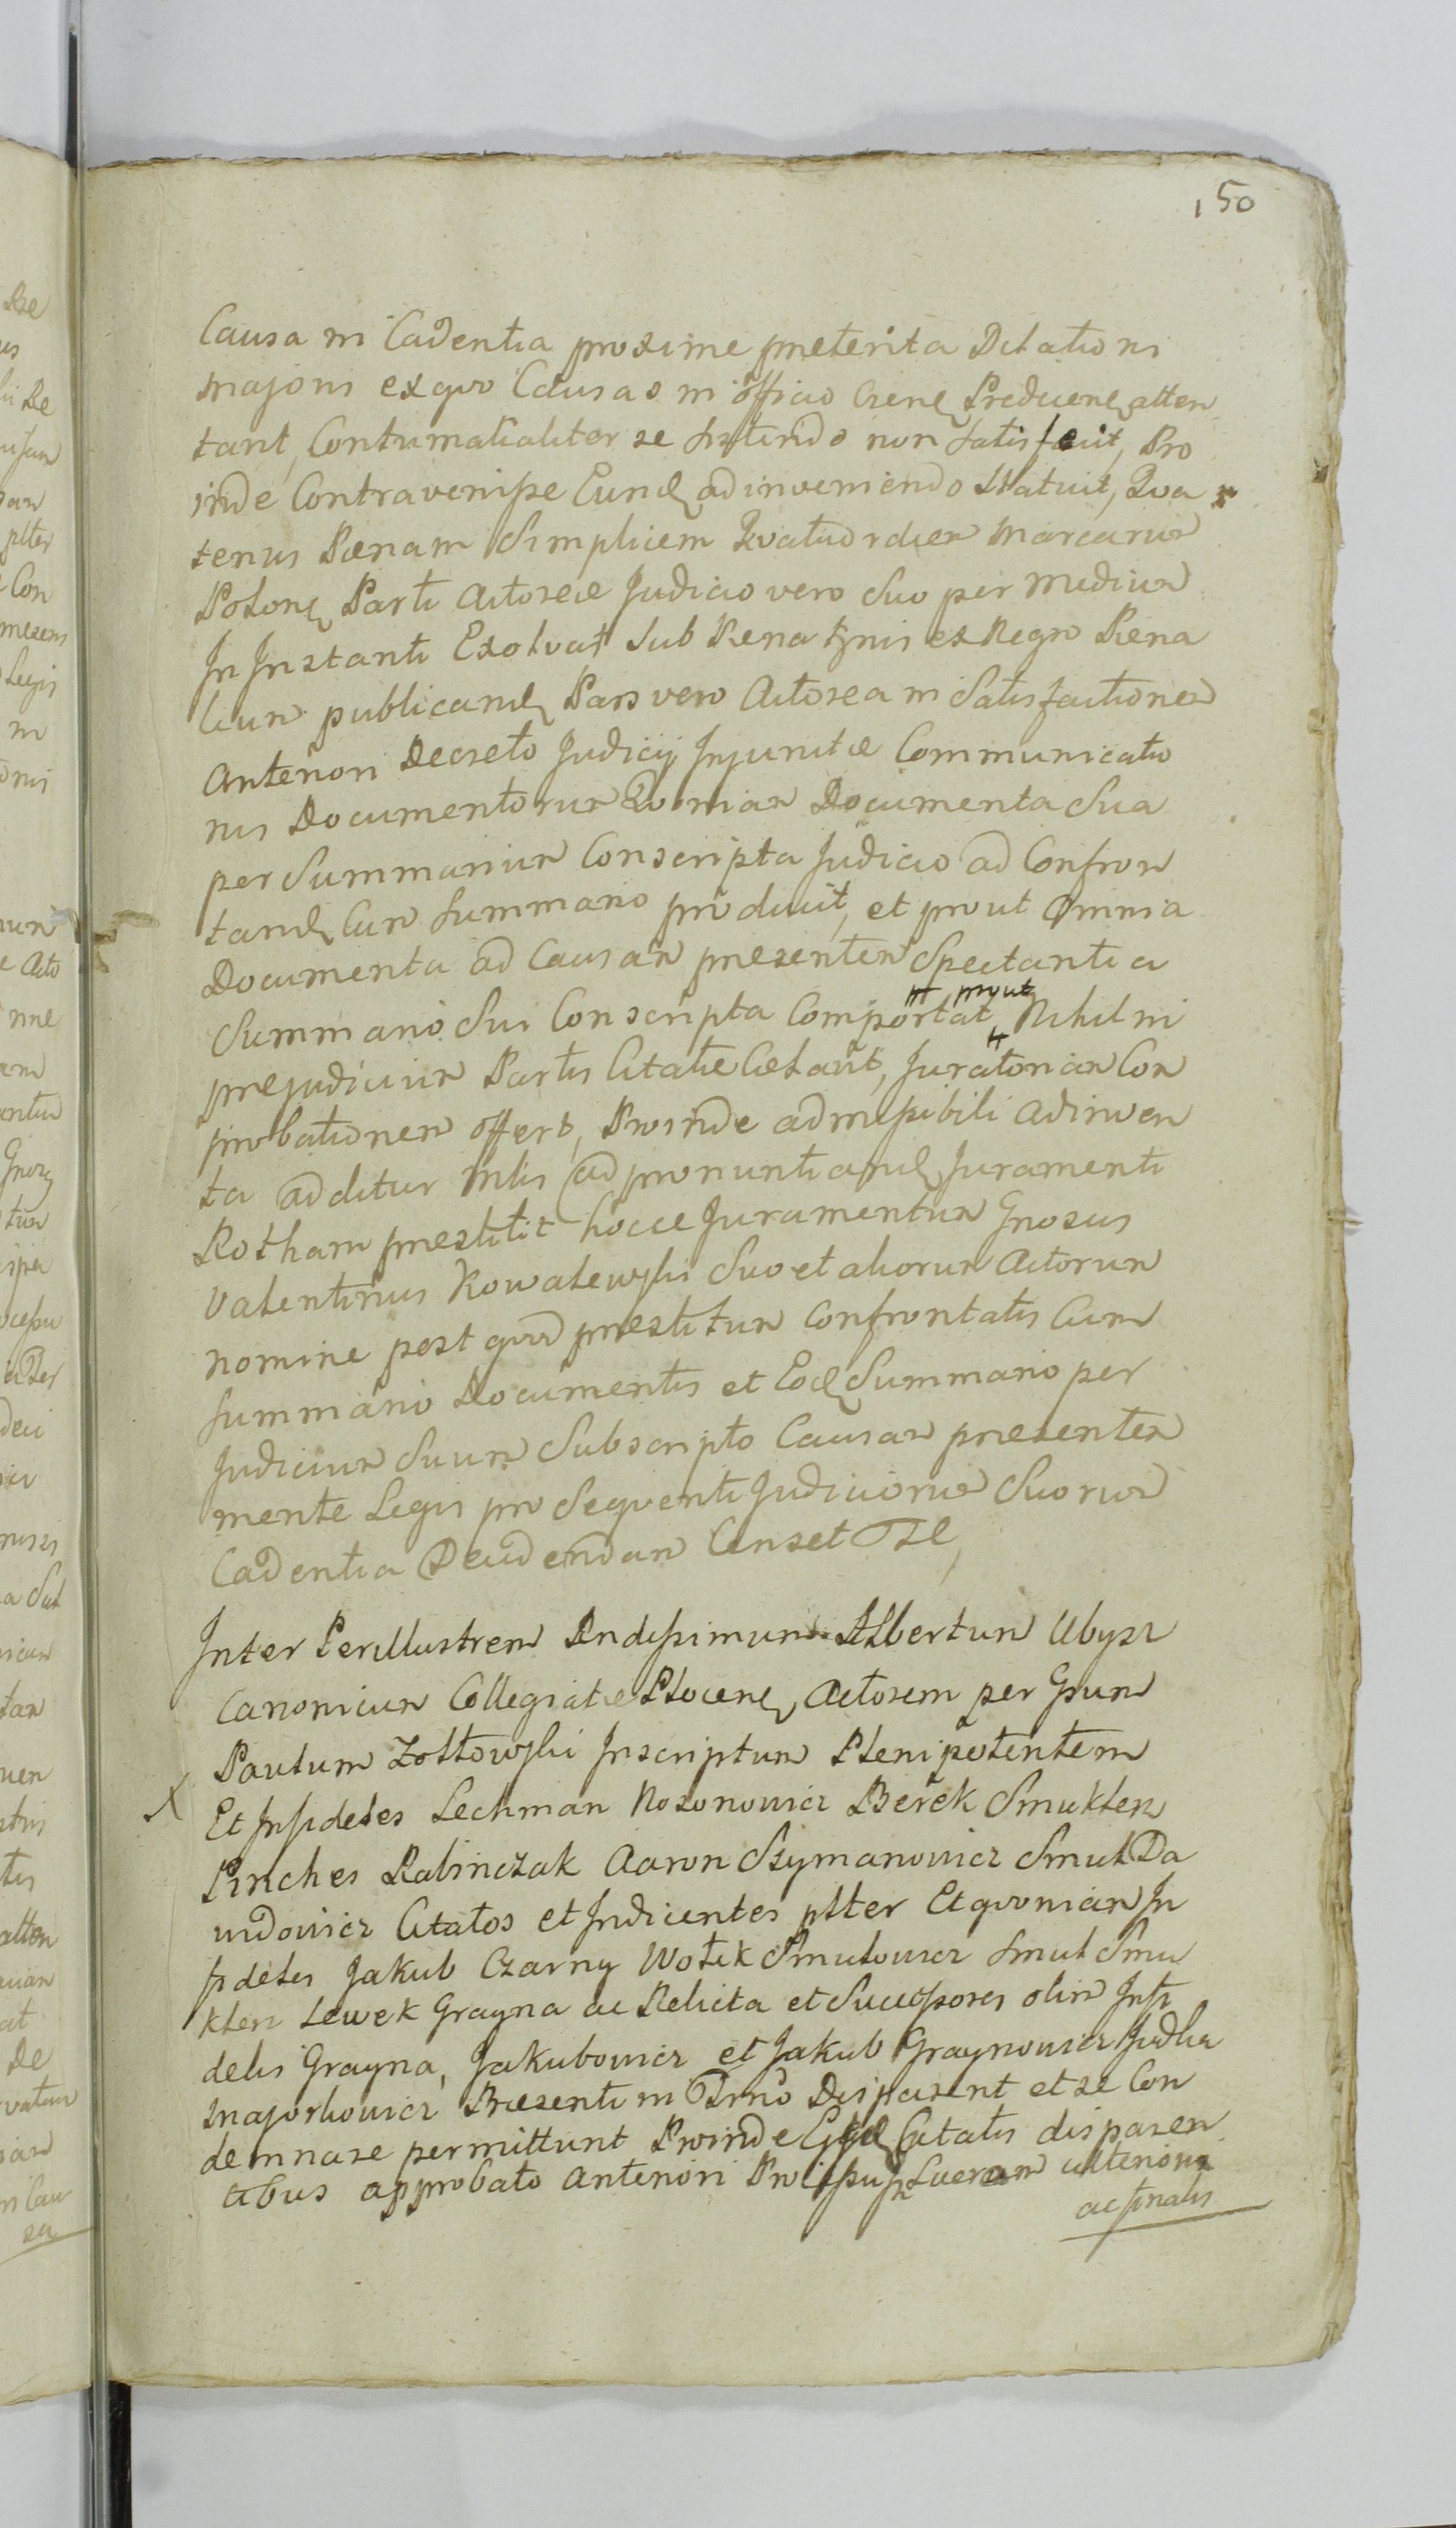 150
Causa in Cadentia proxime preterita Dilationi
majoris ex quo Causas in officio Crenẽ Preducenẽ atten
tant, Contumatialiter se sistendo non satisfecit, Pro
inde Contravenisse Eunđ adinveniendo statuit, Qva
tenus Pœnam Simplicem Qvatuordecem Marcarum
Polonẽ Parti Actoreæ Judicio vero Suo per Medium
In Instanti Exolvat sub Pœna bnis ex Regno Pœna
lium publicanđ Pars vero Actorea in Satisfactionem
Anteriori Decreto Judicij Injunctæ Communicatio
nis Documentorum Qvoniam Documenta Sua
per Summarium Conscripta Judicio ad Confron
tanđ Cum Summario produxit, et prout Omnia
Documenta ad Causam presentem Spectantia
prout
Summario Sui Conscripta Comportat, Nihil in
prejudicium Partis Citatæ Celavit, Juratoriam Com
probationem offert, Proinde admissibili Adinven
ta additur Mlis ad pronuntianđ Juramenti
Rotham prestitit hocce Juramentum Gnosus
Valentinus Kowalewski Suo et aliorum Actorum
nomine post qvod prestitum Confrontatis Cum
Summario Documentis et Eođ Summario per
Judicium Suum Subscripto Causam presentem
mente Legis pro Seqventi Judiciorum Suorum
Cadentia Decidendam Censet
Inter Perillustrem Rndissimum Albertum Ubysz
Canonicum Collegiatæ Plocenẽ, Actorem per Gsum
Paulum Zołtowski Inscriptum Plenipotentem
Et Infideles Lechman Nozonowicz Berek Smuklerz
Pinches Rabinczak Aaron Szymanowicz Smul Da
widowicz Citatos et Indicentes ptter Et qvoniam In
fideles Jakub Czarny Wołek Smulowicz Smul Smu
klerz Lewek Grayna ac Relicta et Successores olim Infi
delis Grayna, Jakubowicz et Jakub Graynowicz Judka
Majorkowicz Præsenti in Trno Disparent et se Con
demnare permittunt Proinde Citatis disparen
tibus approbato Anteriori Lucrum ulterioris
ac finalis